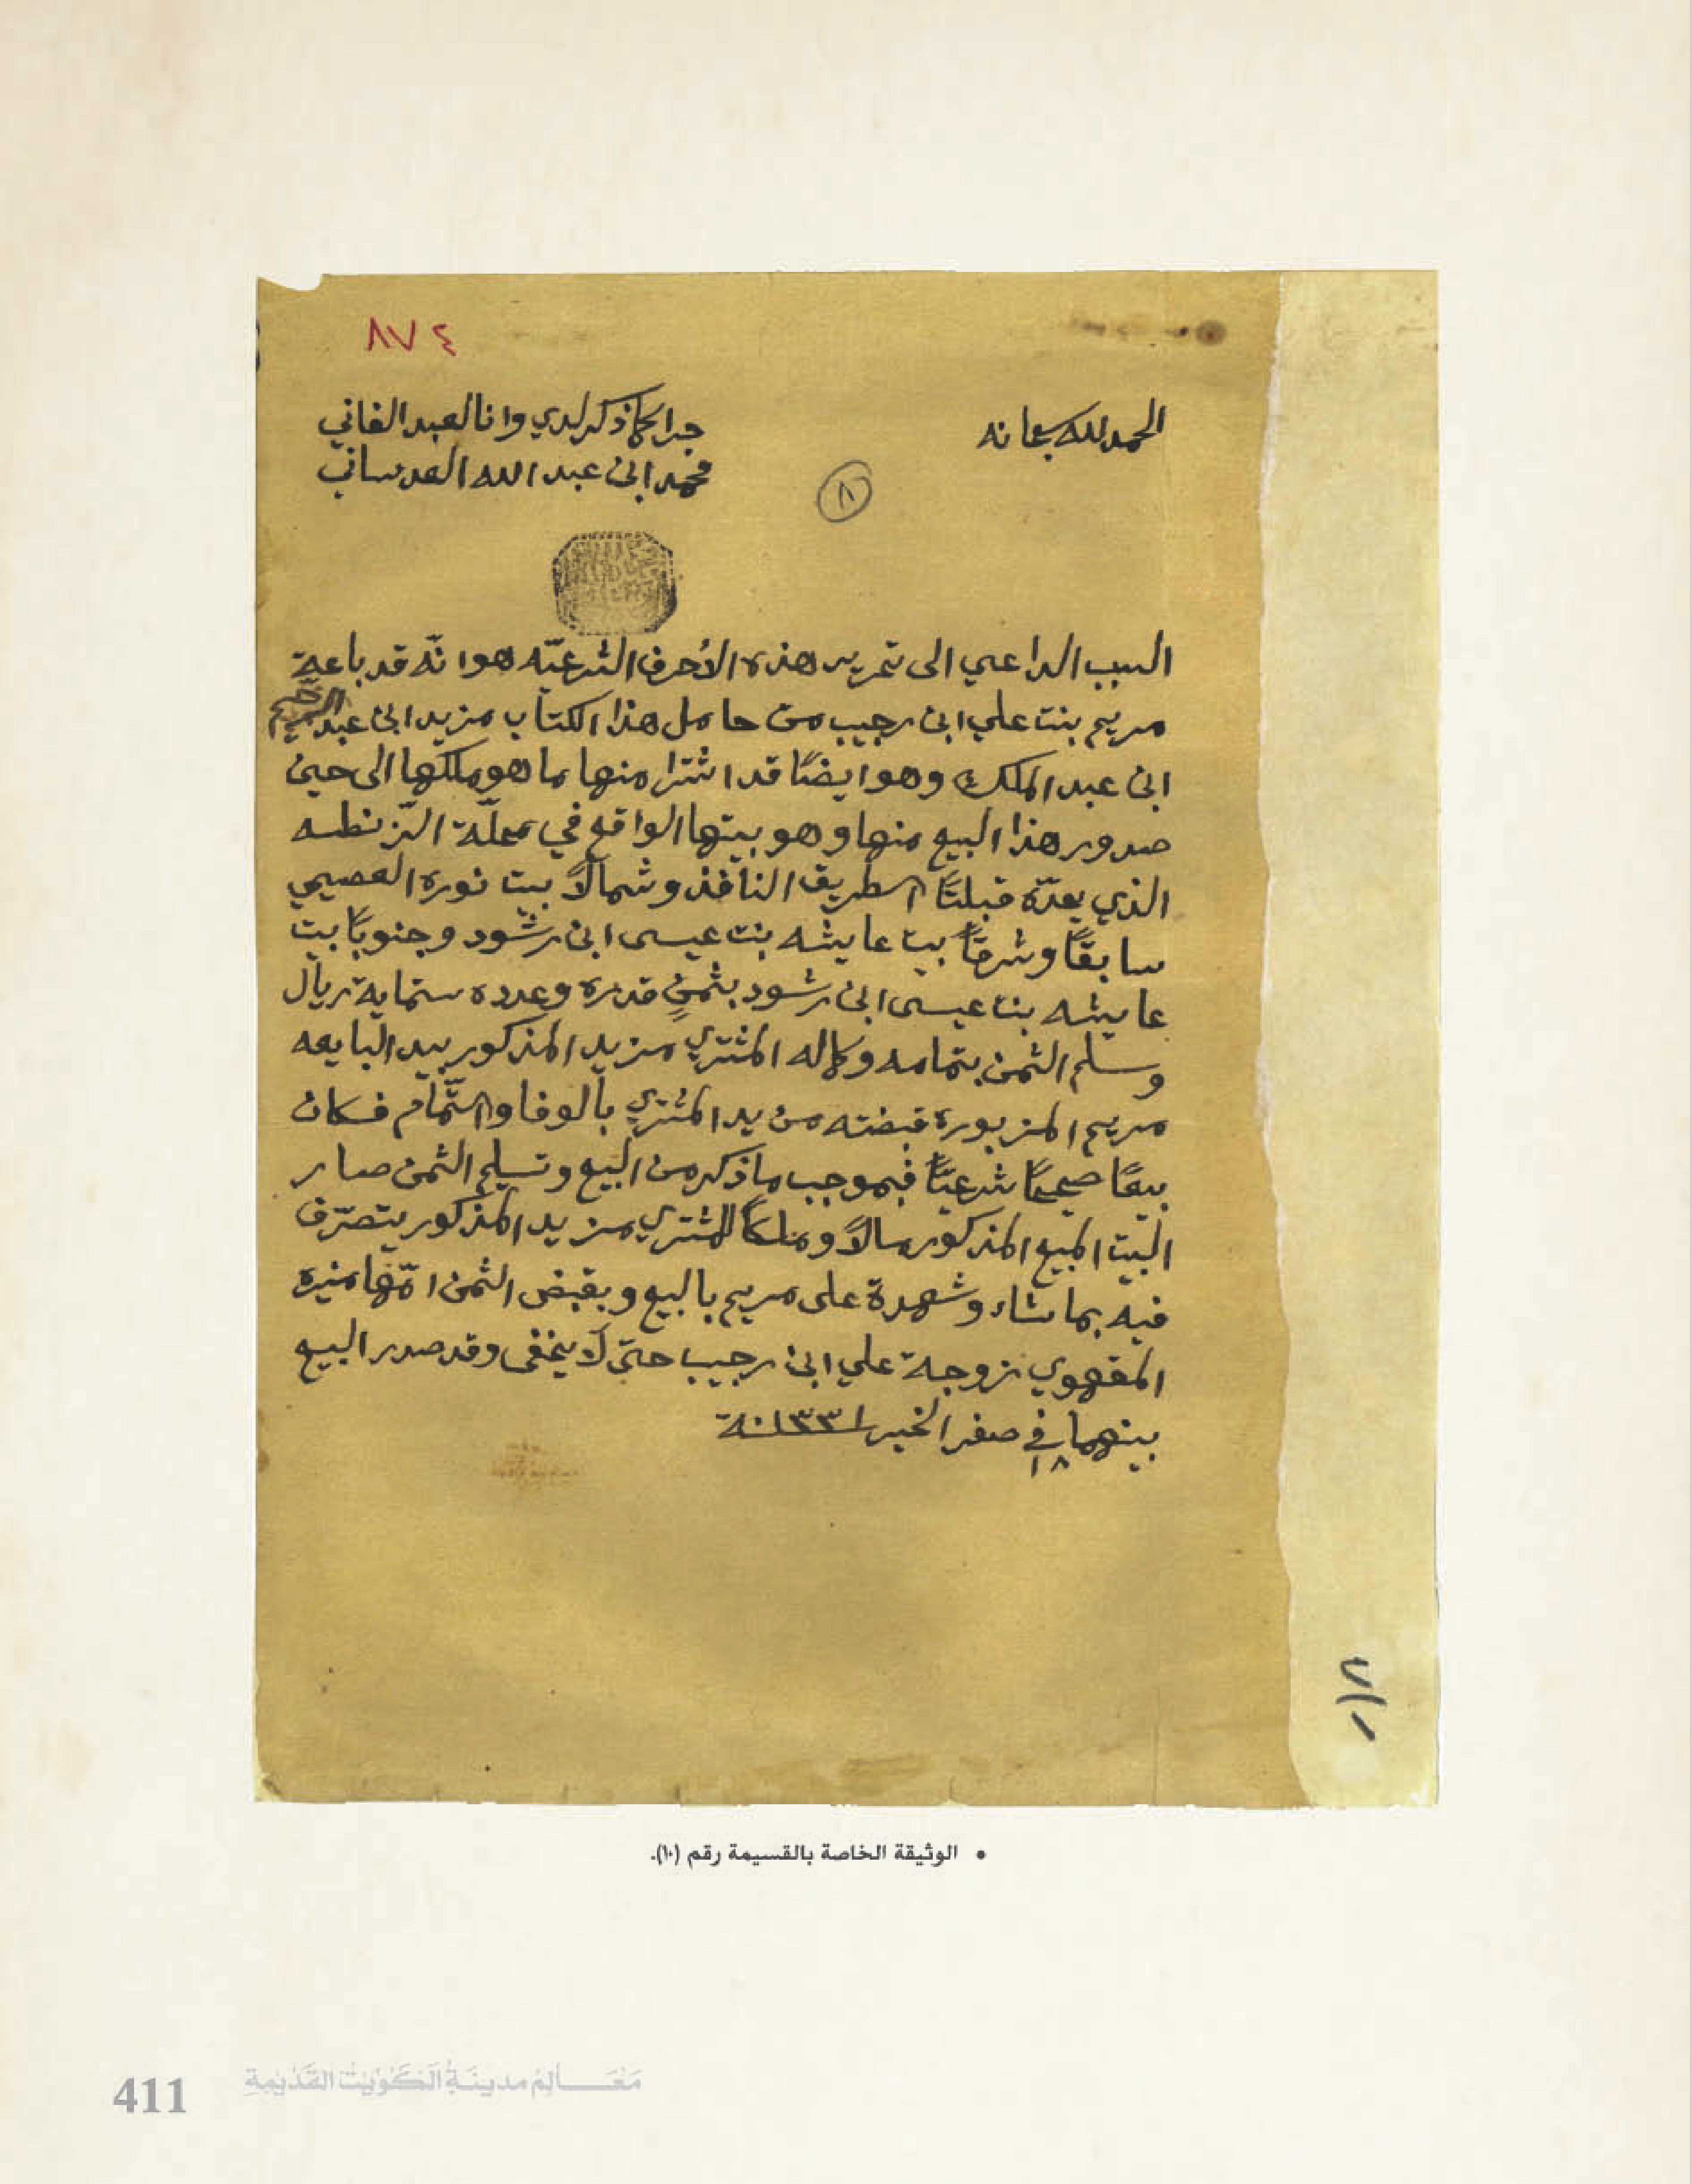 ٨٧٤
الحمد لله سبحانه
جرا كما ذكر لدي وانا العبد الفاني
محمد ابن عبد الله العدساني
٨
السبب الداعي الى تحرير هذه الأحرف الشرعيّه هو انّه قد باعة
مريم بنت علي ابن رجيب من حامل هذا الكتاب مزيد ابن عبد الرحيم
ابن عبد الملك وهو ايضًا قد اشترا منها ما هو ملكها الى حين
صدور هذا البيع منها وهو بيتها الواقع في محلّة الزنطه
الذي يحدّه قبلتًا الطريق النافذ وشمالاً بيت نوره العصيمي
سابقًا وشرقًا بيت عايشه بنت عيسى ابن رشود وجنوبًا بيت
عايشه بنت عيسى ابن رشود بثمنٍ قدره وعدده ستماية ريال
وسلم الثمن بتمامه وكماله المشتري مزيد المذكور بيد البايعه
مريم المزبورة قبضته من يد المشتري بالوفا والتّمام فكان
بيعًا صحيحًا شرعيًّا فبموجب ما ذكر من البيع وتسليم الثمن صار
البيت المبيع المذكور مالاً وملكاً للمشتري مزيد المذكور يتصرّف
فيه بما شاء وشهدة على مريم بالبيع وبقبض الثمن امّها منيره
المقهوي زوجة علي ابن رجيب حتى لا يخفى وقد صدر البيع
بينهما في ١٨ صفر الخير سنة ١٣٣١
٧١٠
• الوثيقة الخاصة بالقسيمة رقم (١٠).
مَعَالِمُ مدينَةِ الكُوَيْت القَدِيمَةِ
411